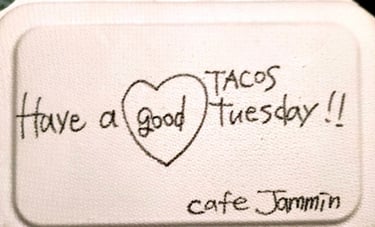 TACOS
Have a good Tuesday!!
cafe Jammin